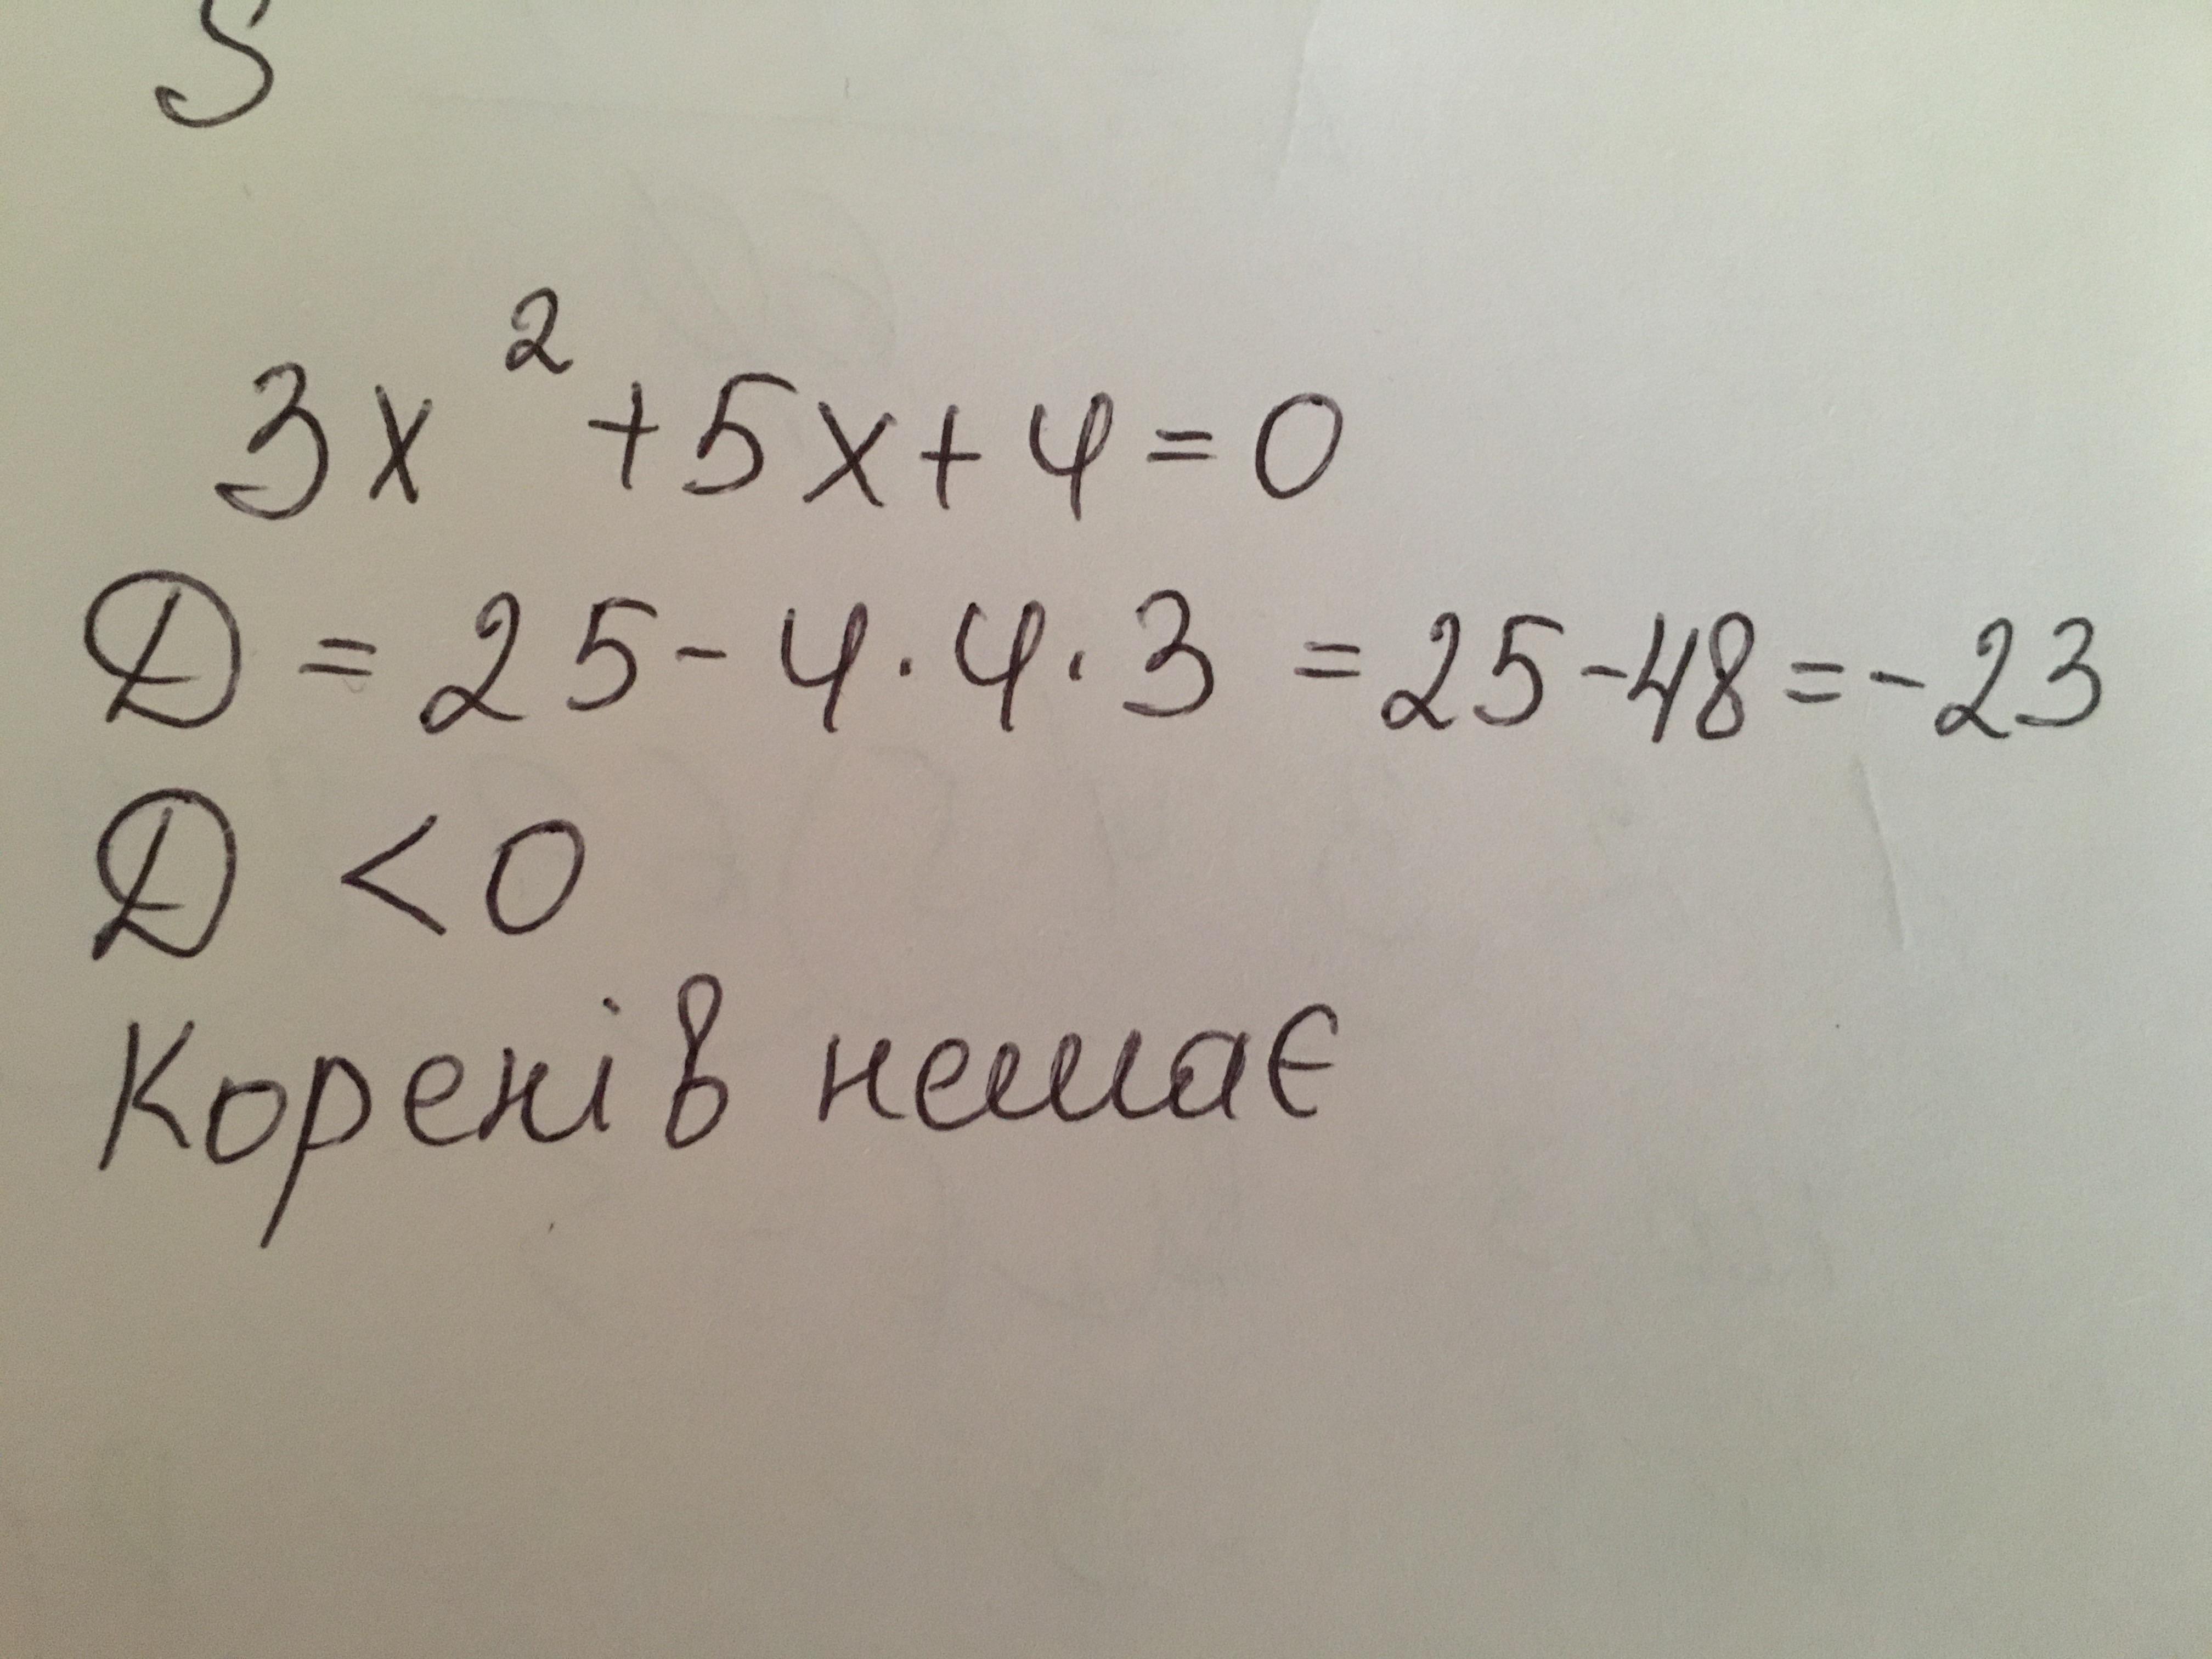 3x² + 5x + 4 = 0
D = 25 - 4 · 4 · 3 = 25 - 48 = -23
D < 0
Коренів немає